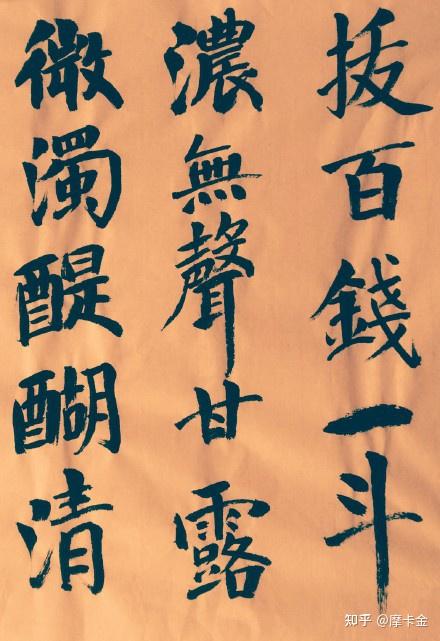 拔百錢一斗
濃無聲甘露
微濁醍醐清
知乎 @摩卡金